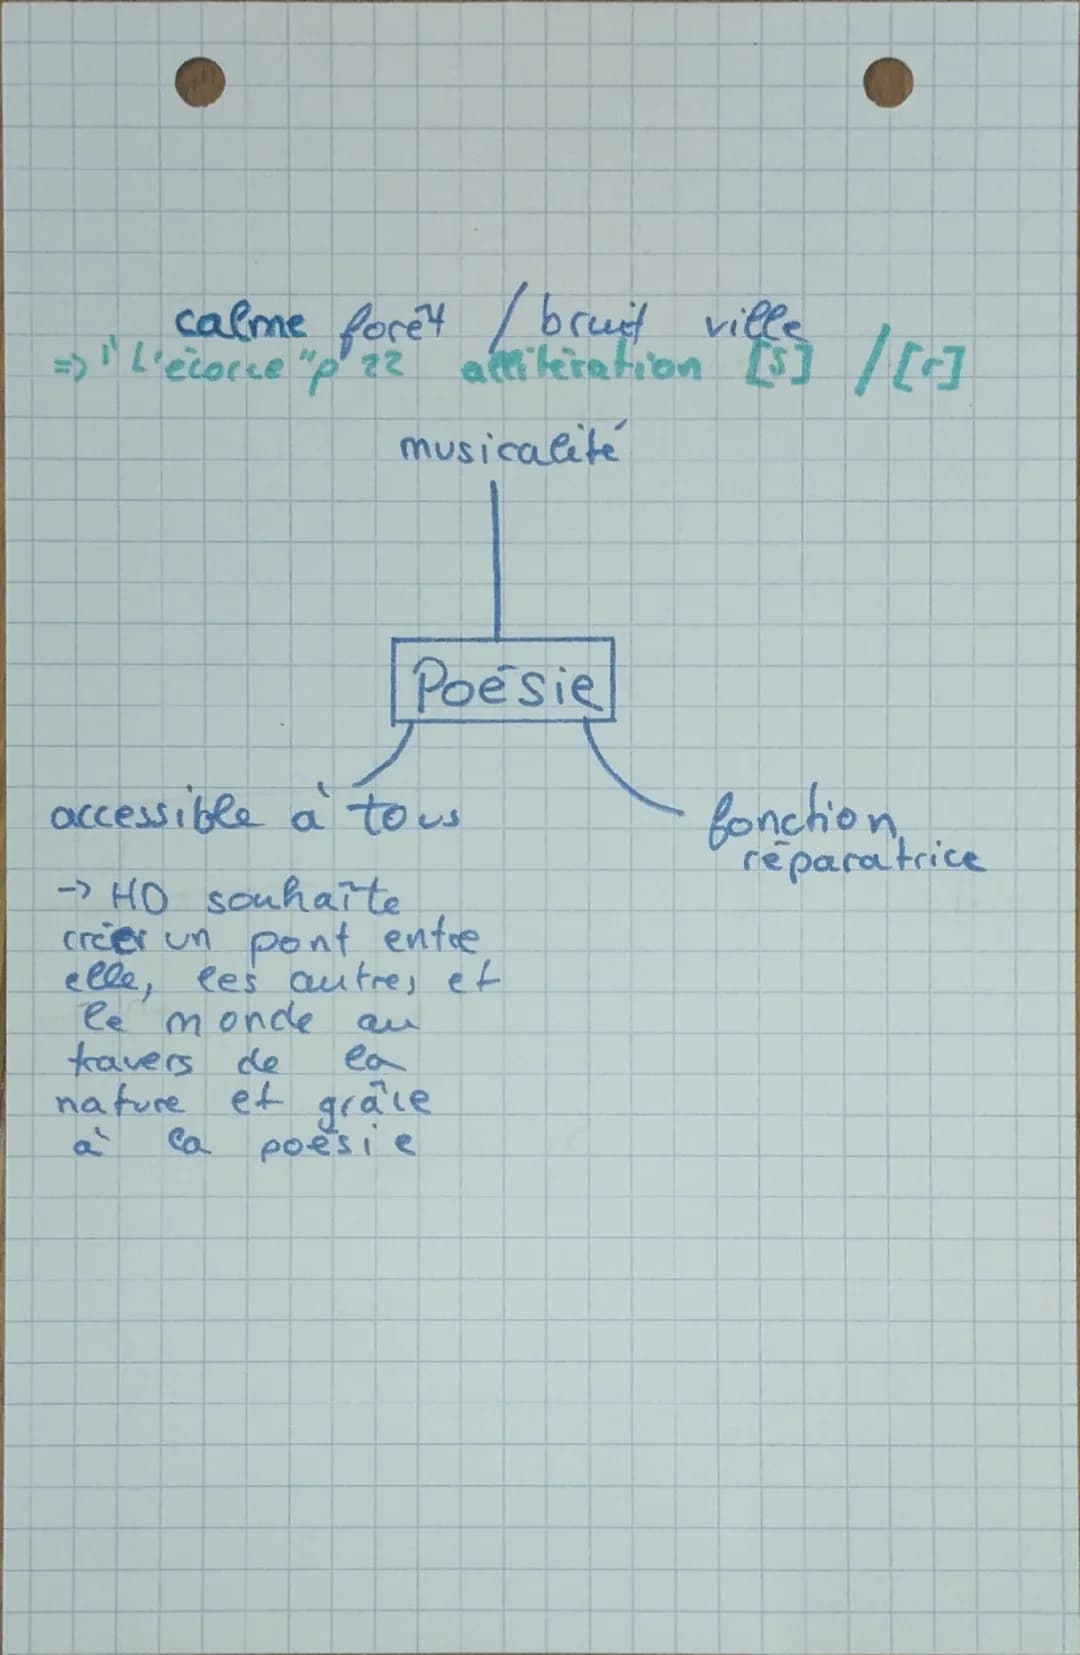 calme forêt / bruit ville
=> "L'écorce" p 22 allitération [s] / [r]
musicalité
Poésie
accessible à tous
fonction
réparatrice
-> HD souhaîte
créer un pont entre
elle, les autres et
le monde au
travers de la
nature et grâce
à la poésie